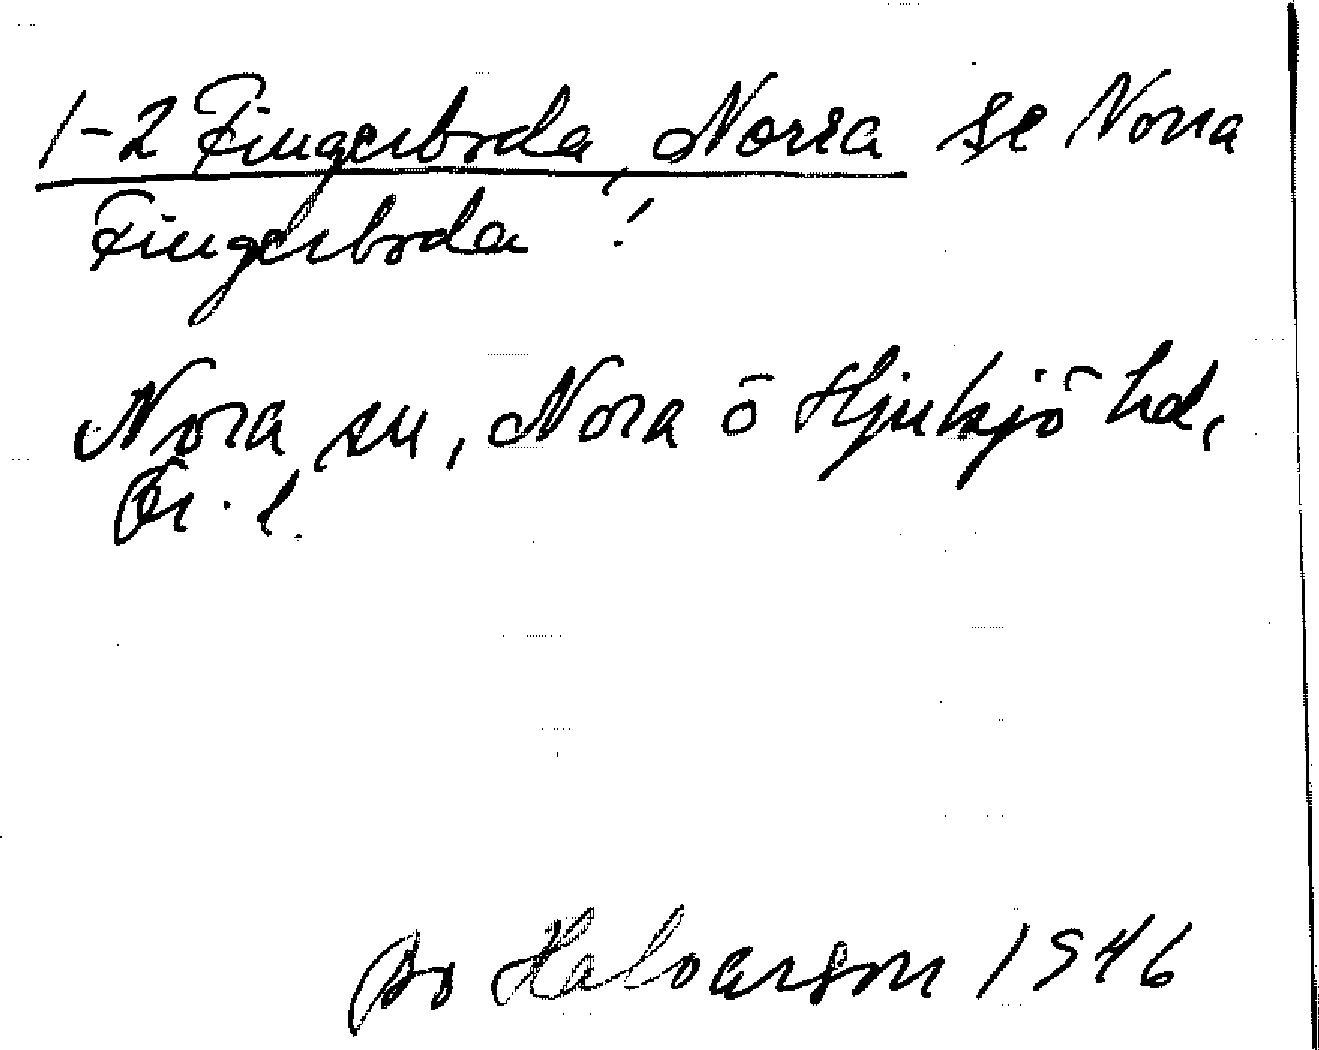 1-2 Fingerboda, Norra se Norra
Fingerboda!
Nora sn, Nora o Hjulsjö hd,
Ör. l.
Bo Halvarson 1946